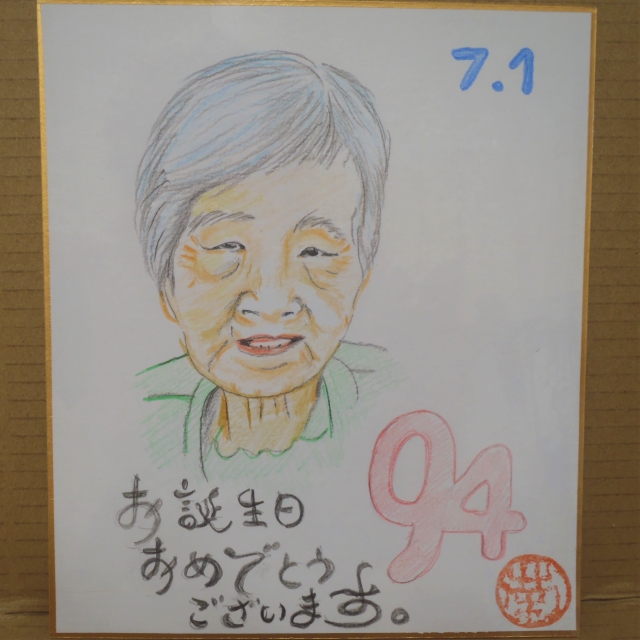 7.1
94
お誕生日
おめでとう
ございます。